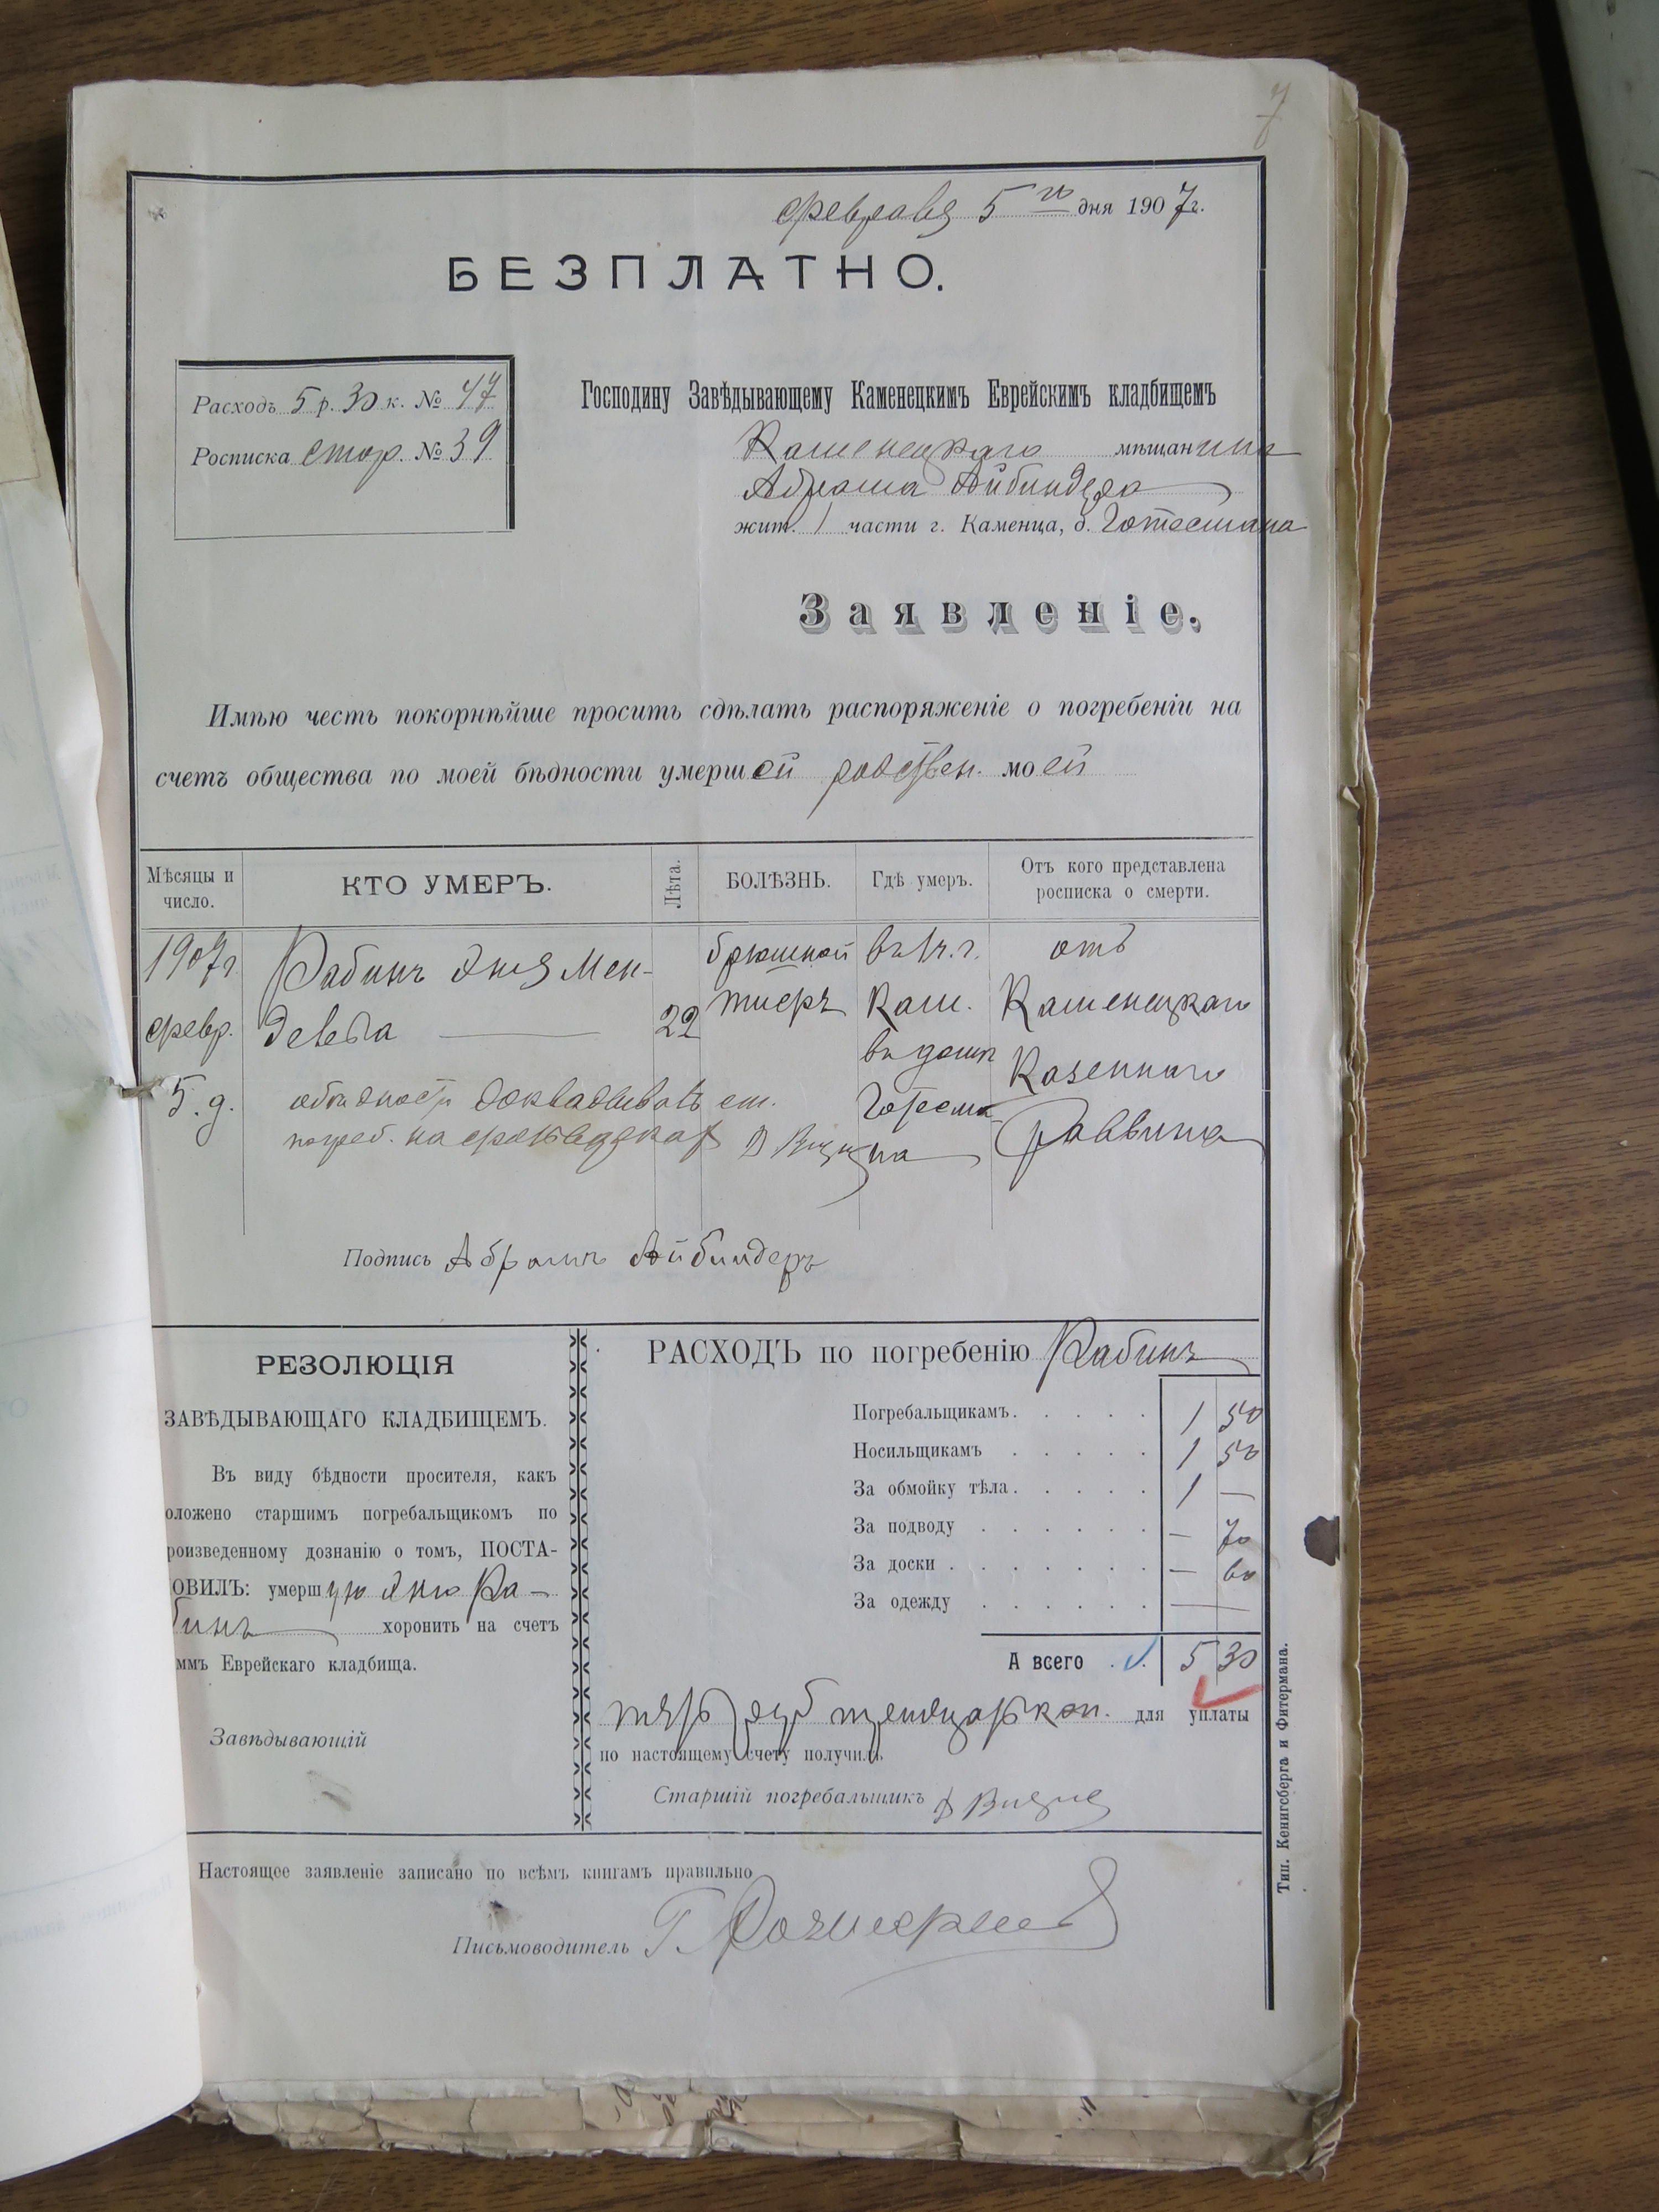 7
февраля 5го дня 1907г.
БЕЗПЛАТНО.
Расходъ 5 р. 30 к. № 47
Росписка стор. № 39
Господину Завѣдывающему Каменецкимъ Еврейскимъ кладбищемъ
Каменецкаго мѣщанина
Абрама Айбиндера
жит. 1 части г. Каменца, д. Готесмана
Заявленіе.
Имѣю честь покорнѣйше просить сдѣлать распоряженіе о погребеніи на
счетъ общества по моей бѣдности умершей родствен. моей
Мѣсяцы и число.
КТО УМЕРЪ.
Лѣта.
БОЛѢЗНЬ.
Гдѣ умеръ.
Отъ кого представлена росписка о смерти.
1907г. февр. 5. д.
Рабинъ Эня Мен-
деевна
22
брюшной
тифъ
въ 1 ч. г.
Кам.
въ домѣ
Готесма-
на
отъ
Каменецкаго
Казеннаго
раввина
о бѣдности докладывалъ ст.
погреб.
Подпись Абрамъ Айбиндеръ
РЕЗОЛЮЦІЯ
ЗАВѢДЫВАЮЩАГО КЛАДБИЩЕМЪ.
Въ виду бѣдности просителя, какъ
оложено старшимъ погребальщикомъ по
роизведенному дознанію о томъ, ПОСТА-
ОВИЛЪ: умершую Эню Ра-
бинъ хоронить на счетъ
ммъ Еврейскаго кладбища.
Завѣдывающій
РАСХОДЪ по погребенію Рабинъ
Погребальщикамъ. . . . . 1 50
Носильщикамъ . . . . . 1 50
За обмойку тѣла. . . . . 1 —
За подводу . . . . . — 70
За доски . . . . . . — 60
За одежду . . . . . —
А всего . . 5 30
пять руб тридцать коп. для уплаты
по настоящему счету получилъ
Старшій погребальщикъ
Настоящее заявленіе записано по всѣмъ книгамъ правильно
Письмоводитель
Тип. Кенигсберга и Фитермана.